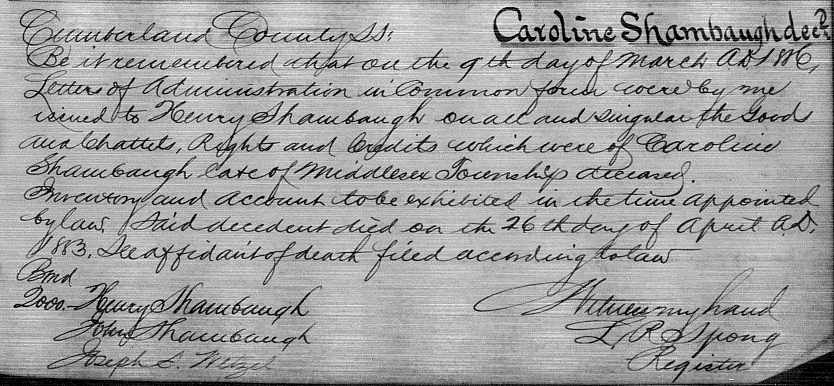 Cumberland County SS:
Caroline Shambaugh decd
Be it remembered that on the 9th day of March AD 1886,
Letters of Administration in Common form were by me
issued to Henry Shambaugh on all and singular the Goods
and Chattels, Rights and Credits which were of Caroline
Shambaugh late of Middlesex Township deceased.
Inventory and account to be exhibited in the time appointed
by law. Said decedent died on the 26th day of April A.D.
1883. See affidavit of death filed according to law
Bond
2000. Henry Shambaugh
John Shambaugh
Joseph S. Wetzel
Witness my hand
L R Spong
Register